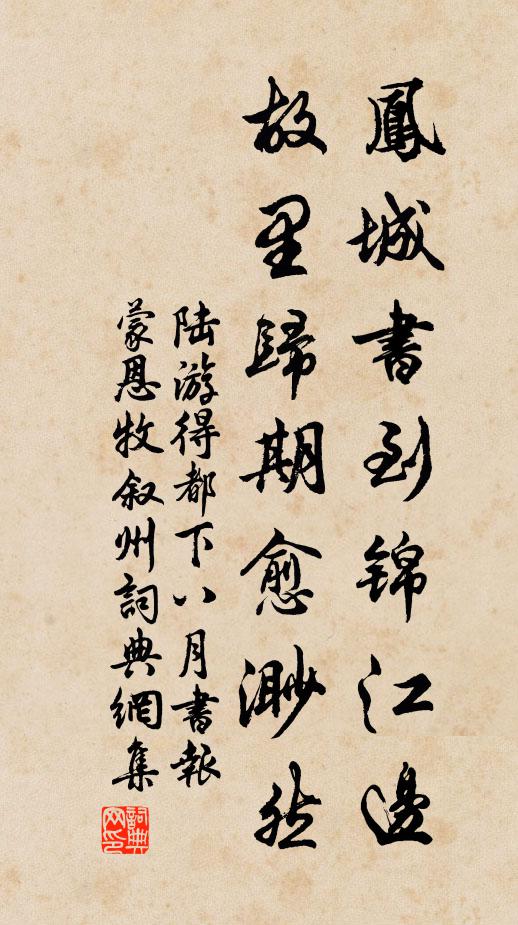 鳳城書到錦江邊
故里歸期愈渺然
陆游得都下八月書報
蒙恩牧叙州詞典網集
詞典网印